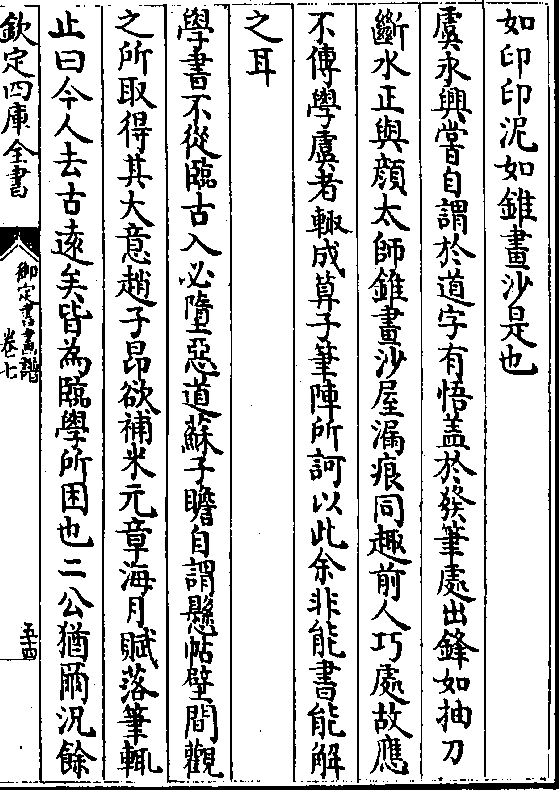 如印印泥如錐畫沙是也
虞永興嘗自謂於道字有悟盖於發筆處出鋒如抽刀
斷水正與顔太師錐畫沙屋漏痕同趣前人巧處故應
不傳學虞者輙成算子筆陣所訶以此余非能書能解
之耳
學書不從臨古入必墮惡道蘇子瞻自謂懸帖壁間觀
之所取得其大意趙子昂欲補米元章海月賦落筆輒
止曰今人去古逺矣皆為臨學所困也二公猶爾況餘
欽定四庫全書
御定書畫譜
卷七
五十四